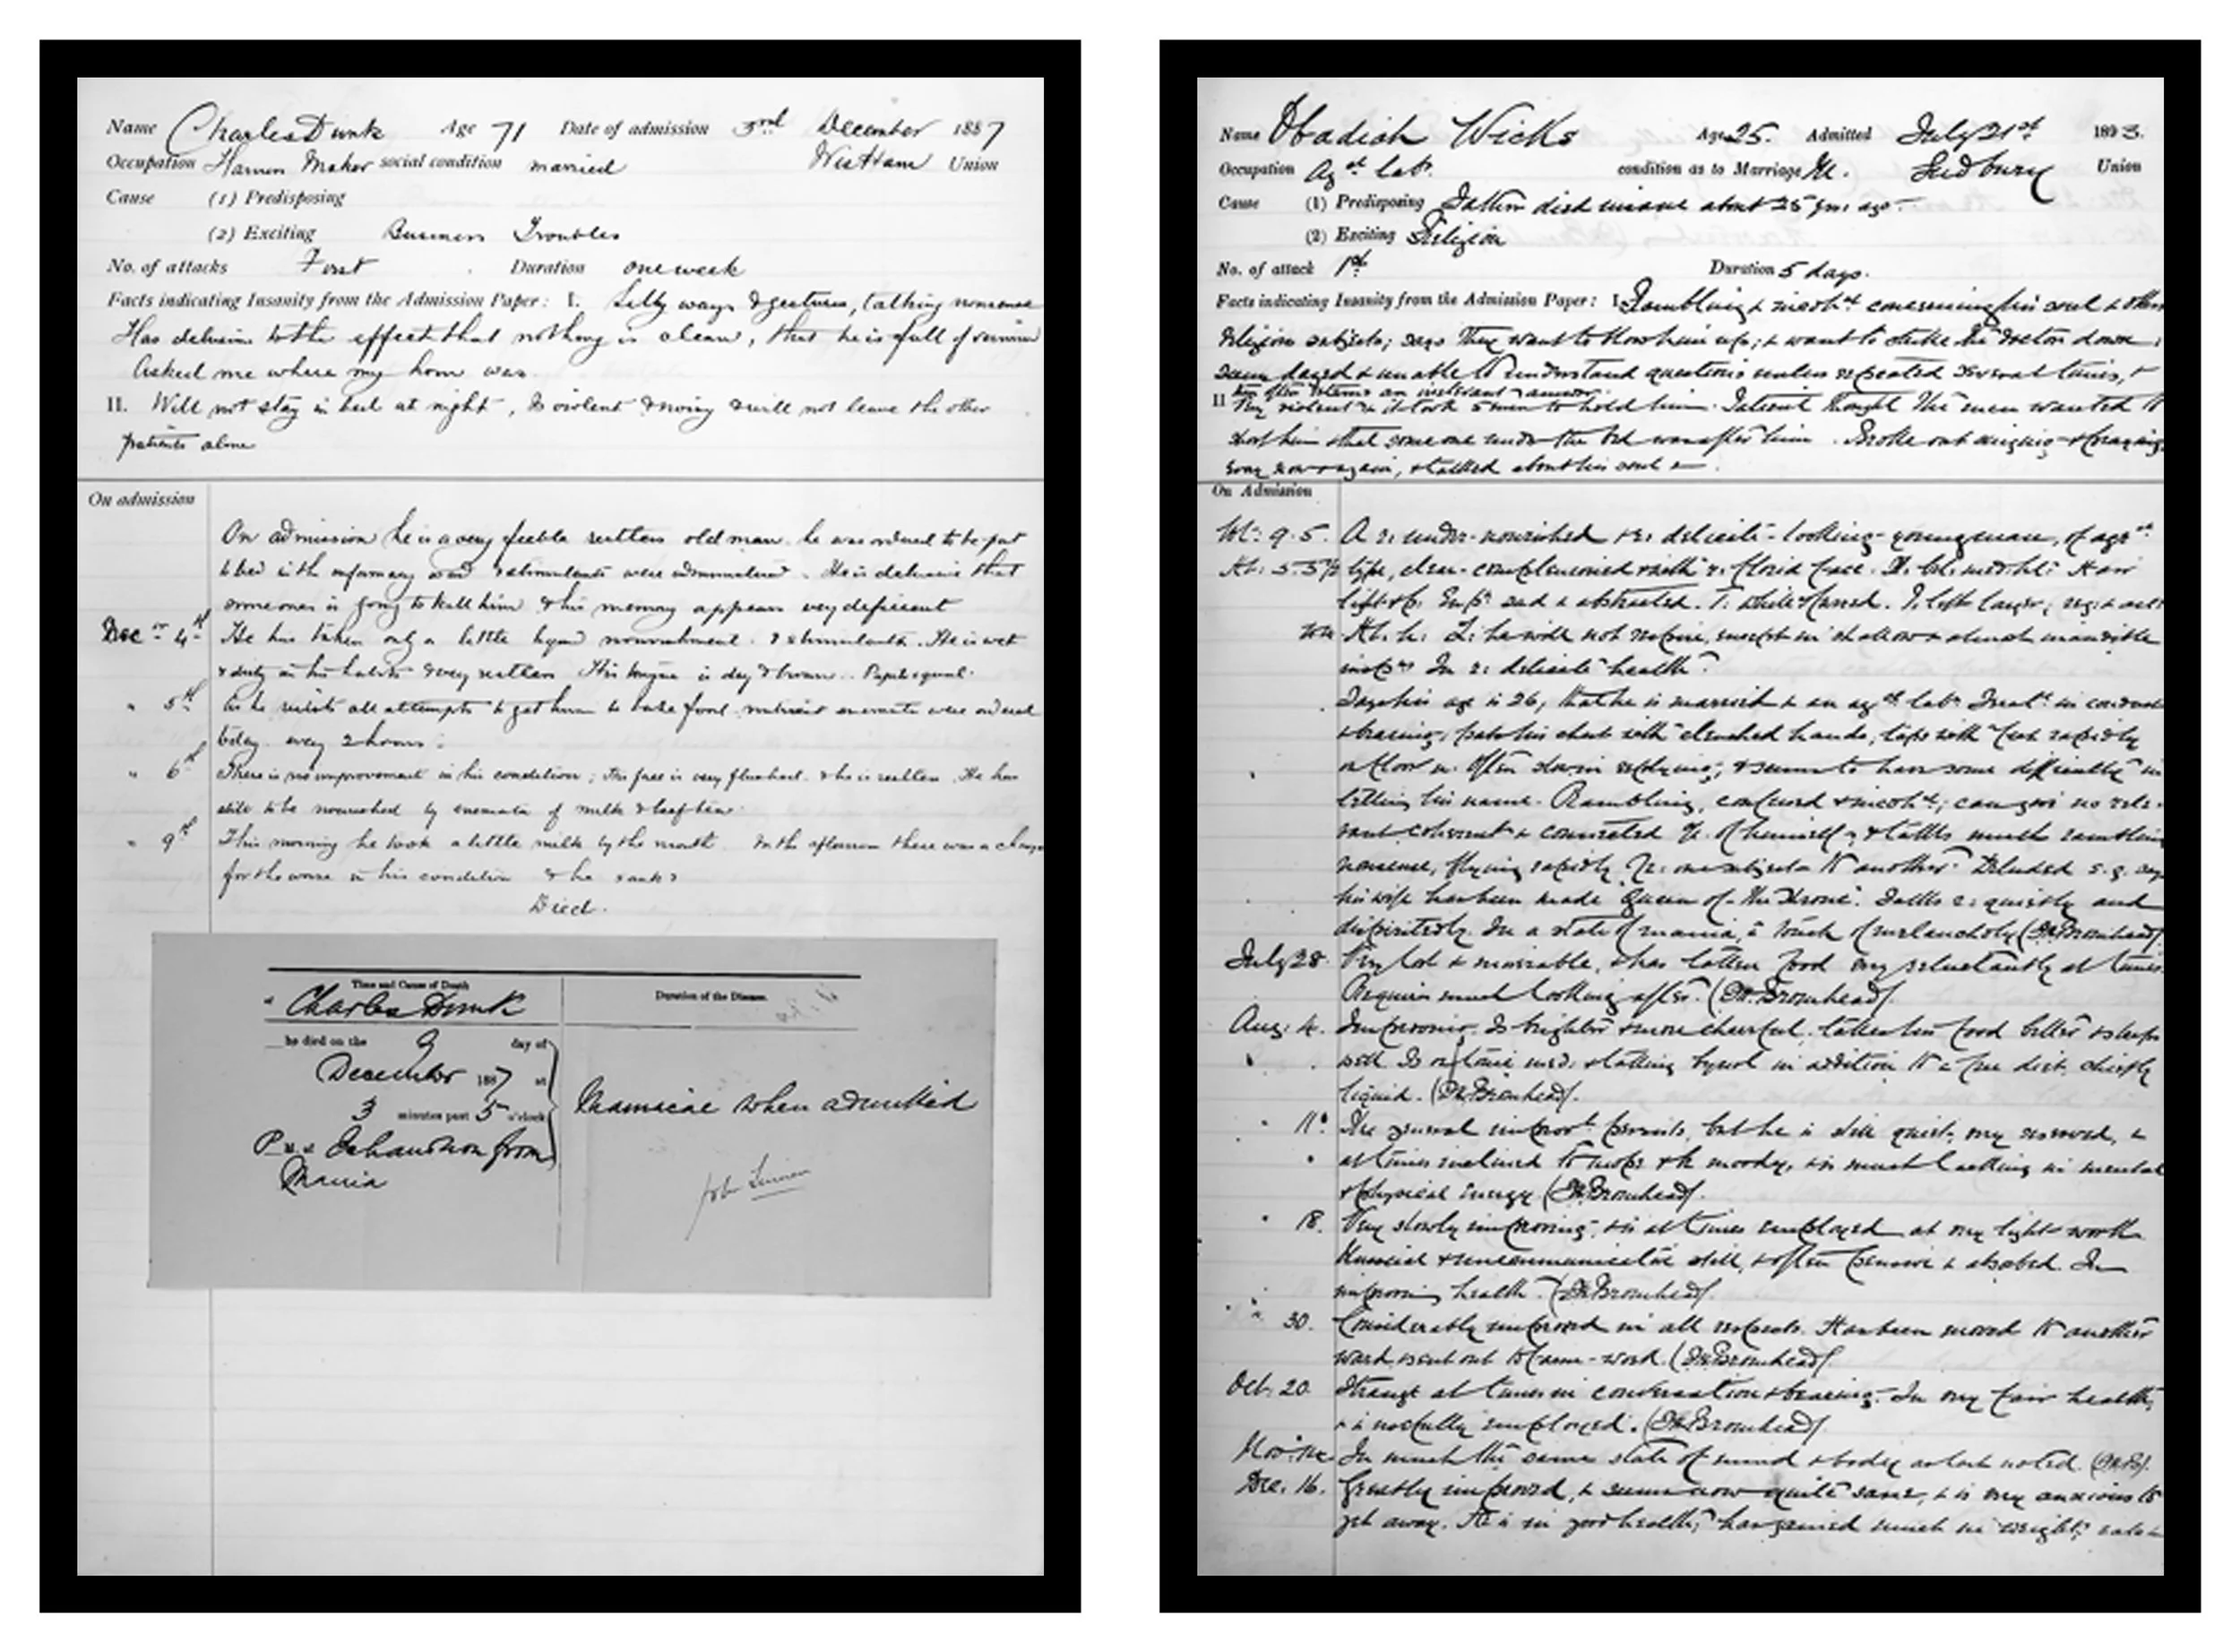 Name Charles Dunk Age 71 Date of admission 3rd December 1887
Occupation Harness Maker social condition married West Ham Union
Cause (1) Predisposing
(2) Exciting Business Troubles
No. of attacks First Duration one week
Facts indicating Insanity from the Admission Paper: I. Silly ways & gestures, talking nonsense
Has delusion to the effect that nothing is clean, that he is full of vermin
Asked me where my horn was
II. Will not stay in bed at night, Is violent & noisy & will not leave the other
patients alone
On admission
On admission he is a very feeble restless old man. he was ordered to be put
to bed in the infirmary and stimulants were administered. He is delusive that
someone is going to kill him & his memory appears very deficient
Decr 4th He has taken only a little liquid nourishment & stimulants. He is wet
& dirty in his habits & very restless His tongue is dry & brown. Pupils equal.
" 5th As he resists all attempts to get him to take food nutrient enemata were ordered
today every 2 hours.
" 6th There is no improvement in his condition; the face is very flushed & he is restless He has
still to be nourished by enemata of milk & beef tea.
" 9th This morning he took a little milk by the mouth In the afternoon there was a change
for the worse in his condition & he sank
Died.
Time and Cause of Death
Duration of the Disease.
of Charles Dunk
he died on the 9 day of
December 1887 at
3 minutes past 5 o'clock
Maniacal when admitted
P.M. Exhaustion from
Mania
John
Name Obadiah Wicks Age 25. Admitted July 21st 1893.
Occupation Agst labr. condition as to Marriage M. Sudbury Union
Cause (1) Predisposing Father died insane about 25 yrs. ago.
(2) Exciting Religion
No. of attack 1st Duration 5 days.
Facts indicating Insanity from the Admission Paper: I. Rambling & incoht concerning his soul & other
religious subjects; says They want to blow him up; & want to strike the doctor down;
seems dazed & unable to understand questions unless repeated several times, &
then often returns an irrelevant answer.
II Very violent & it took 5 men to hold him. Patient thought the men wanted to
shoot him & that someone under the bed was after him. Broke out singing & praying
every now & again, & talked about his soul &
On Admission
Wt: 9.5. A r: under-nourished & r: delicate-looking young man, of agst
Ht: 5.5½ type, clear-complexioned with r: florid face. Hair
light Expn sad & abstracted. T: white & furred. P. left larger; reg: & act:
to lt. Ht: h: L: he will not respire, except in shallow & almost inaudible
inspns In r: delicate health.
Says his age is 26, that he is married & an agst labr in conduct
& bearing; pats his chest with clenched hands, taps with feet rapidly
on floor Often slow in replying, & seems to have some difficulty in
telling his name. Rambling, confused & incoht; can give no rele-
vant coherent & connected of himself; & talks much rambling
nonsense, flying rapidly fr: one subject to another. Deluded e.g. says
his wife has been made 'Queen of the Throne'. Talks r: quietly and
dispiritedly. In a state of mania, c touch of melancholy (Dr. Bromhead).
July 28. Very lost & miserable, & has taken food very reluctantly at times.
Requires much looking after. (Dr. Bromhead).
Aug: 4. Improving. Is brighter & more cheerful, takes his food better & sleeps
well. Is on tonic med: & taking in addition to a full diet, chiefly
liquid. (Dr. Bromhead).
" 11. The general improvt persists, but he is still quiet, very reserved, &
at times inclined to mope & be moody, & is much lacking in mental
& physical energy (Dr. Bromhead).
" 18. Very slowly improving, & is at times employed at very light work
& uncommunicative still, & often pensive & absorbed. In
improving health. (Dr. Bromhead).
" 30. Considerably improved in all respects. Has been moved to another
ward & sent out to farm-work. (Dr. Bromhead).
Oct: 20. Strange at times in conversation & bearing. In very fair health,
& is usefully employed. (Dr. Bromhead).
Nov: In much the same state of mind & body as last noted. (Dr. B).
Dec. 16. Greatly improved, & seems now quite sane, & is very anxious to
get away. He is in good health; has gained much in weight; eats &